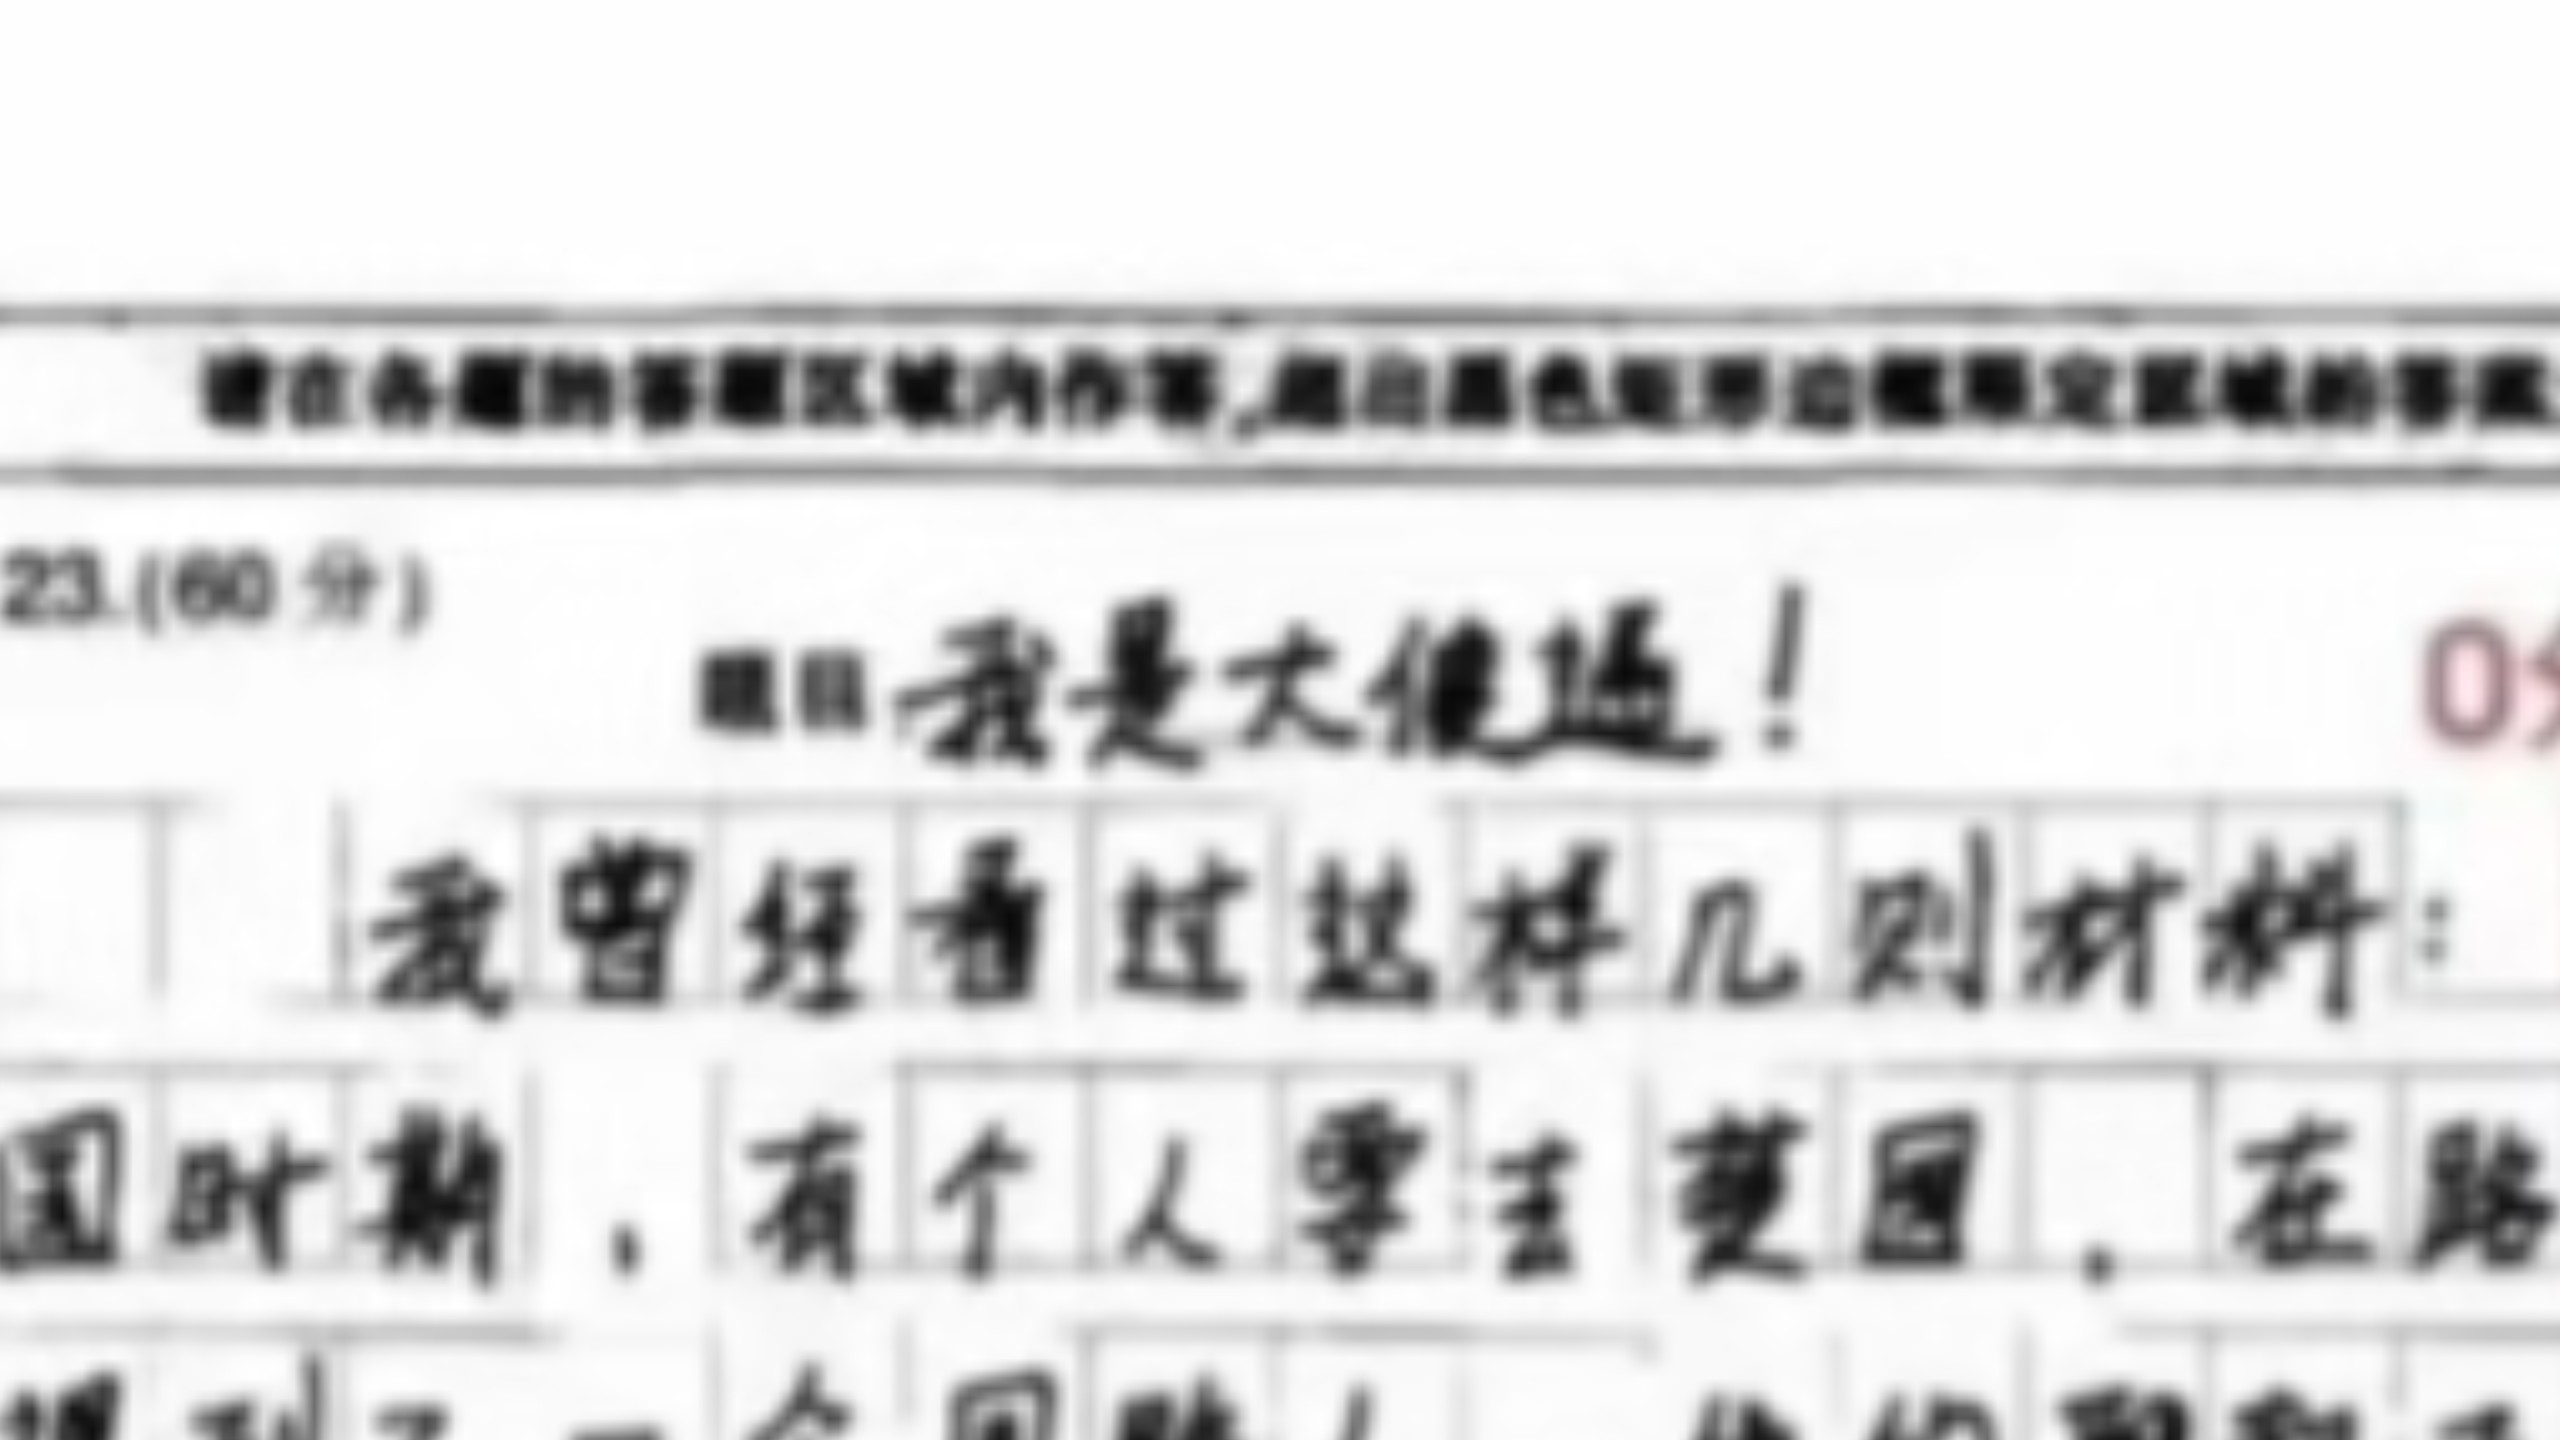 请在各题的答题区域内作答,超出黑色矩形边框限定区域的答案
23.(60分)
题目 我是大傻逼!
0分
我曾经看过这样几则材料:
国时期,有个人要去楚国,在路
到了一个同路人